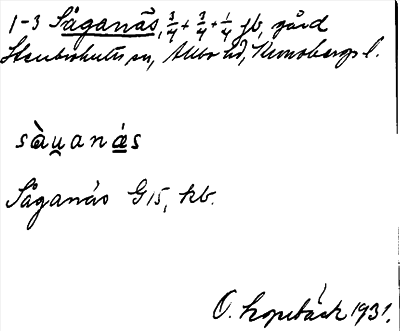 1-3 Såganäs, 3/4 + 3/4 + 1/4 jb, gård
Stenbrohults sn, Allbo hd, Kronobergs l.
sàu̯anás
Såganäs G15, kb.
O. Lopebäck 1931.